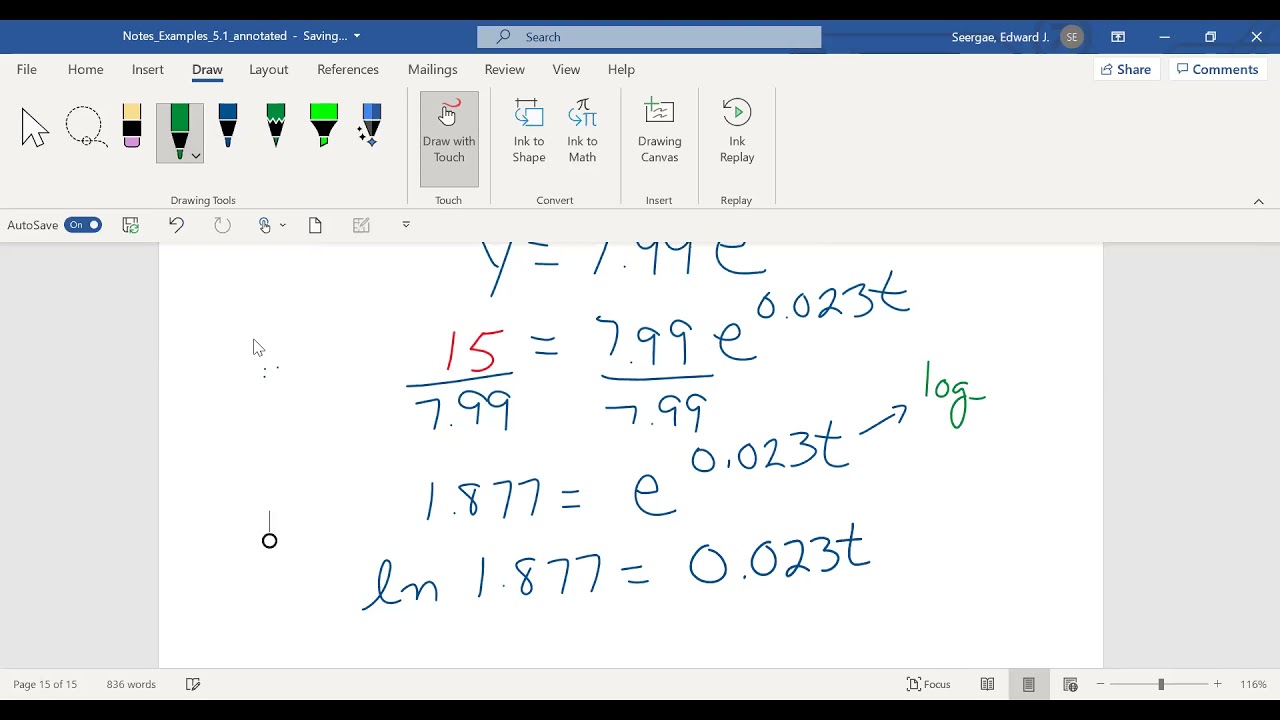 Notes_Examples_5.1_annotated - Saving...
Search
Seergae, Edward J.
SE
File Home Insert Draw Layout References Mailings Review View Help
Share Comments
Draw with Touch
Ink to Shape
Ink to Math
Drawing Canvas
Ink Replay
Drawing Tools Touch Convert Insert Replay
AutoSave On
y = 7.99 e
15 = 7.99 e^0.023t
7.99 7.99
log
1.877 = e^0.023t
ln 1.877 = 0.023t
Page 15 of 15 836 words Focus 116%